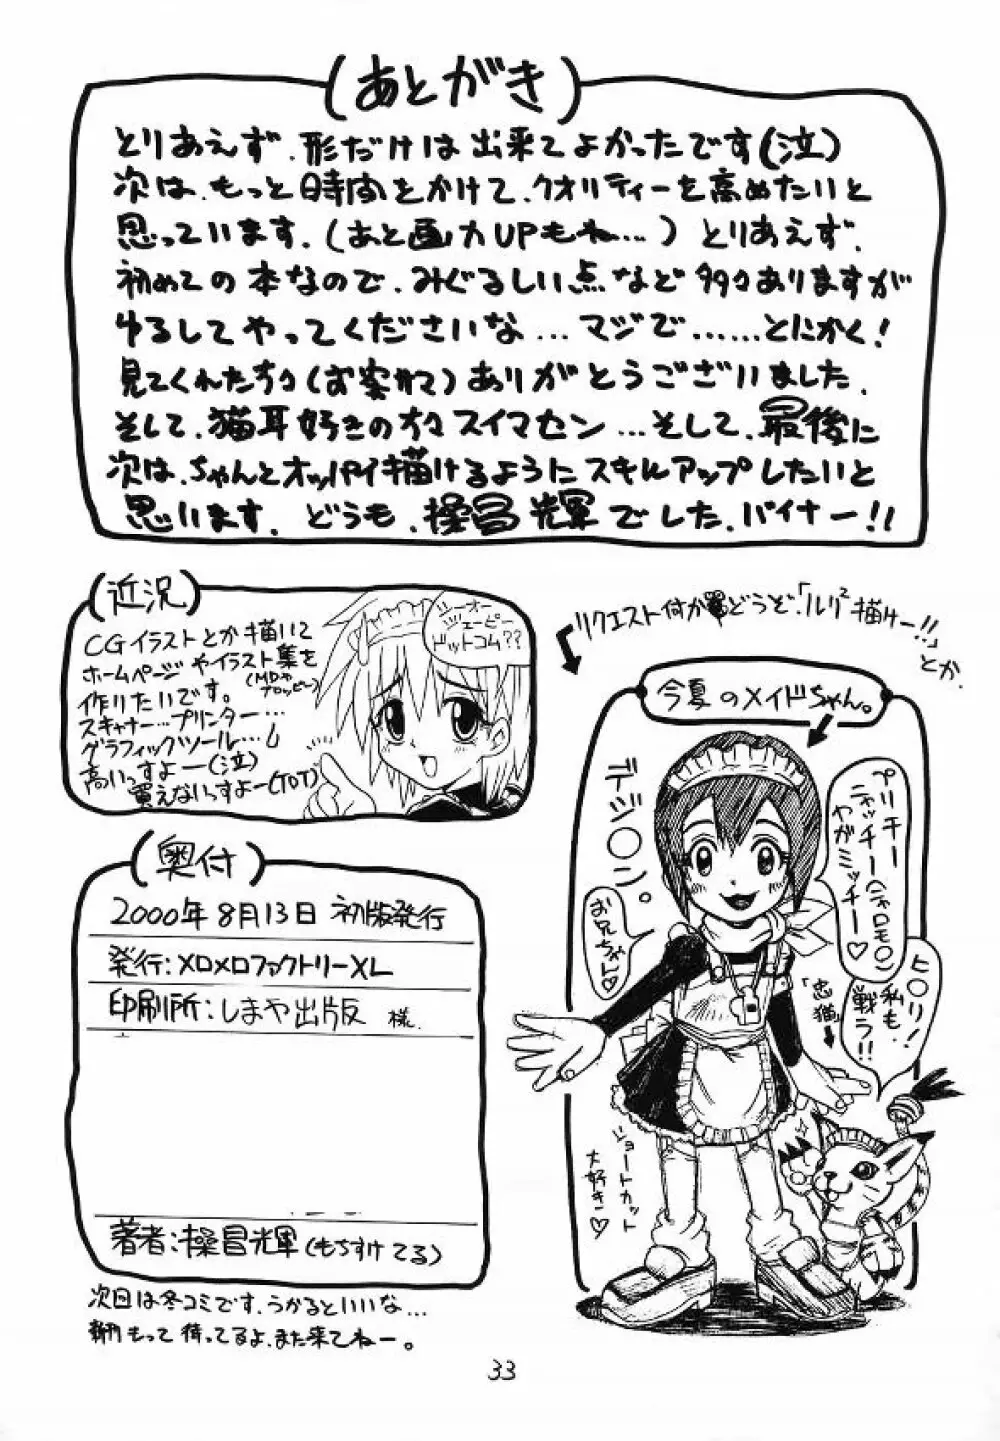 (あとがき)
とりあえず、形だけは出来てよかったです(泣)
次は、もっと時間をかけて、クオリティーを高めたいと
思っています。(あと画力UPもね…)とりあえず、
初めての本なので、みぐるしい点など多々ありますが
ゆるしてやってくださいな…マジで……とにかく!
見てくれた方々(お客サマ)ありがとうございました。
そして、猫耳好きの方々スイマセン…そして、最後に
次は、ちゃんとオッパイ描けるようにスキルアップしたいと
思います。どうも、操昌輝でした、バイナー!!
(近況)
CGイラストとか描いて
ホームページやイラスト集を
(MDやフロッピー)
作りたいです。
スキャナー…プリンター…
グラフィックツール…し
高いっすよー(泣)
買えないっすよー(TOT)
シーオー
ジェーピー
ドットコム??
リクエスト何かどうぞ、「ルリ²描けー!!」
とか、
今夏のメイドちゃん。
デジ〇ン。
お兄ちゃん♡
プリチー
ニャッチー(ニャロモ〇ン)
やがミッチー♡
ヒ〇リ!
私も
戦う!!
「忠猫」
ショートカット
大好き♡
(奥付)
2000年8月13日 初版発行
発行:メロメロファクトリーXL
印刷所:しまや出版 様
著者:操昌輝(もちすけてる)
次回は冬コミです、うかるといいな…
もって待ってるよ、また来てねー。
33